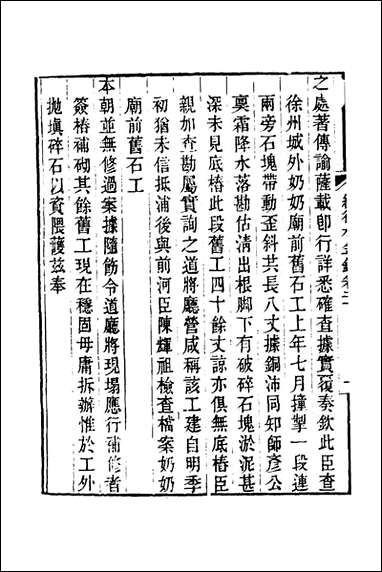 之處著傳諭薩載卽行詳悉確查據實覆奏欽此臣查
徐州城外奶奶廟前舊石工上年七月撞掣一段連
兩旁石塊帶動歪斜共長八丈據銅沛同知師彥公
稟霜降水落勘估淸出根脚下有破碎石塊淤泥甚
深未見底樁此段舊工四十餘丈諒亦俱無底樁臣
親加查勘屬實詢之道將廳營咸稱該工建自明季
初猶未信抵浦後與前河臣陳輝祖檢查檔案奶奶
廟前舊石工
本朝並無修過案據隨飭令道廳將現塌應行補修者
簽樁補砌其餘舊工現在穩固毋庸拆辦惟於工外
拋塡碎石以資隈護茲奉